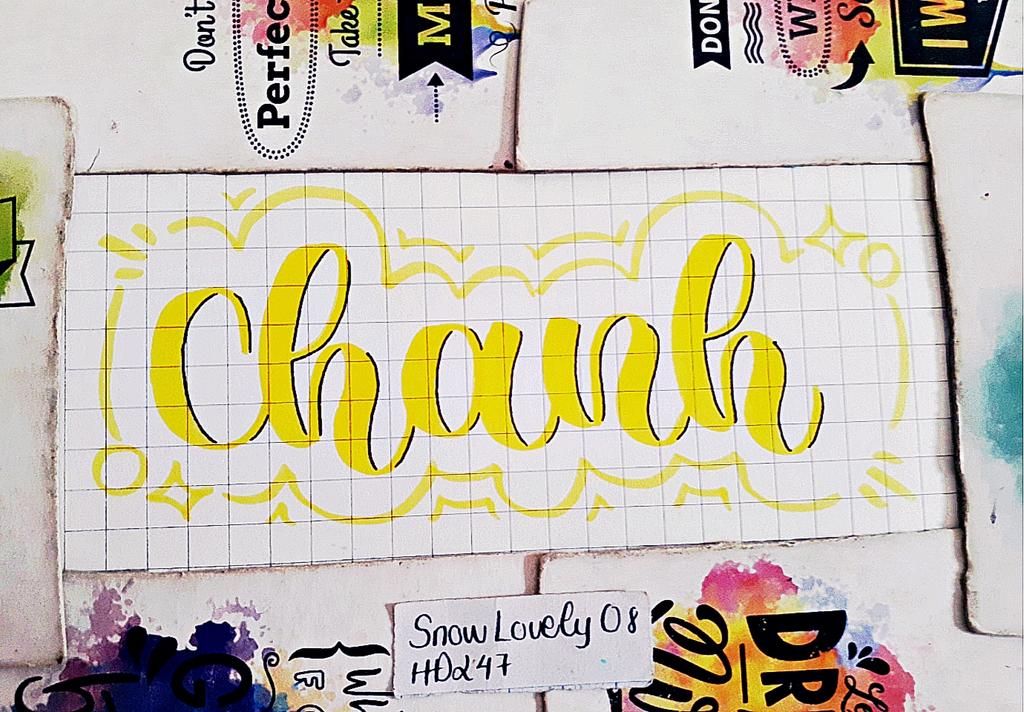 Don't
Perfec
Take
M
DON
W
I W
Chanh
Snow Lovely 08
HD247
G
DR